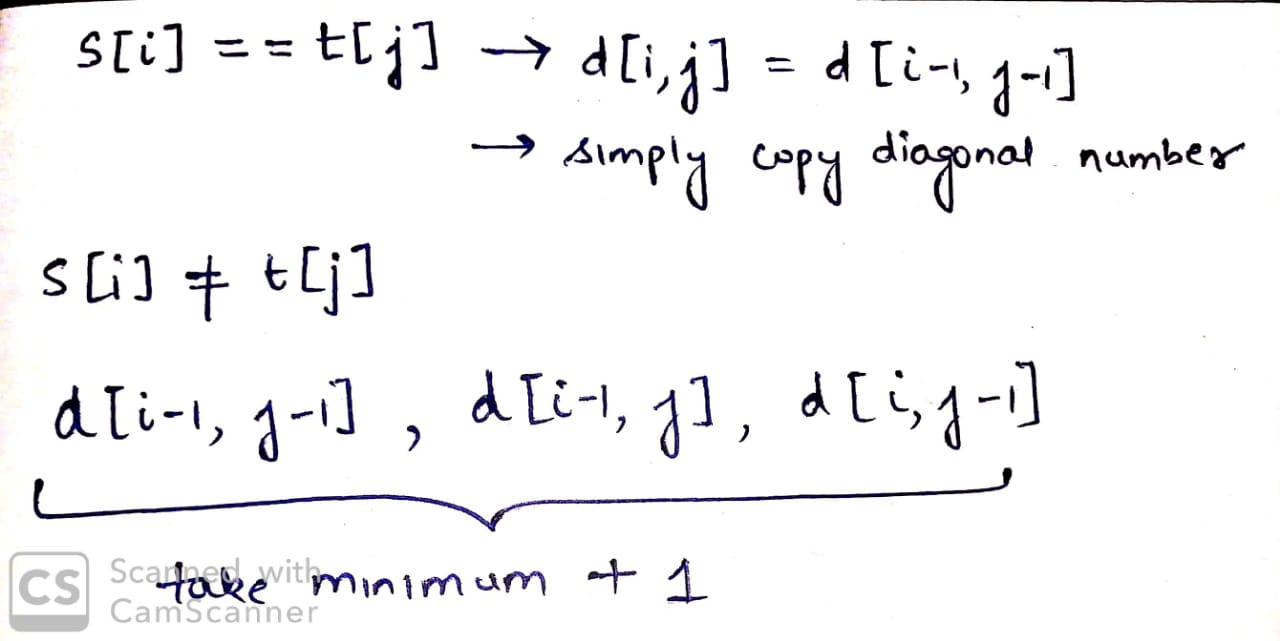 s[i] == t[j] → d[i,j] = d[i-1, j-1]
→ simply copy diagonal number
s[i] ≠ t[j]
d[i-1, j-1] , d[i-1, j], d[i, j-1]
take minimum + 1
CS Scanned with
CamScanner